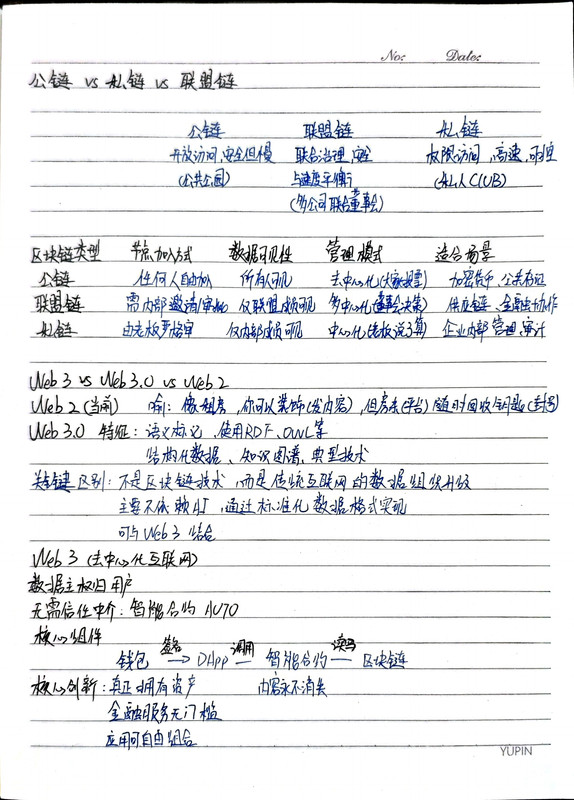 No: Date:
公链 vs 私链 vs 联盟链
公链 联盟链 私链
开放访问,安全但慢 联合治理,安全 权限访问,高速,可控
(公共公园) 与速度平衡 (私人CLUB)
(多公司联合董事会)
区块链类型 节点加入方式 数据可见性 管理模式 适合场景
公链 任何人自由加 所有人可见 去中心化(大家投票) 加密货币、公共存证
联盟链 需内部邀请/审批 仅联盟成员可见 多中心化(董事会决策) 供应链、金融协作
私链 由老板严格审 仅内部成员可见 中心化(老板说了算) 企业内部管理、审计
Web3 vs Web3.0 vs Web2
Web2(当前) 喻:像租房,你可以装饰(发内容),但房东(平台)随时回收钥匙(封号)
Web3.0 特征:语义标记、使用RDF、OWL等
结构化数据、知识图谱、典型技术
关键区别:不是区块链技术,而是传统互联网的数据组织升级
主要不依赖AI,通过标准化数据格式实现
可与Web3结合
Web3(去中心化互联网)
数据主权归用户
无需信任中介:智能合约AUTO
核心组件
钱包 签名→ DApp 调用— 智能合约 读写— 区块链
核心创新:真正拥有资产 内容永不消失
金融服务无门槛
应用可自由组合
YUPIN